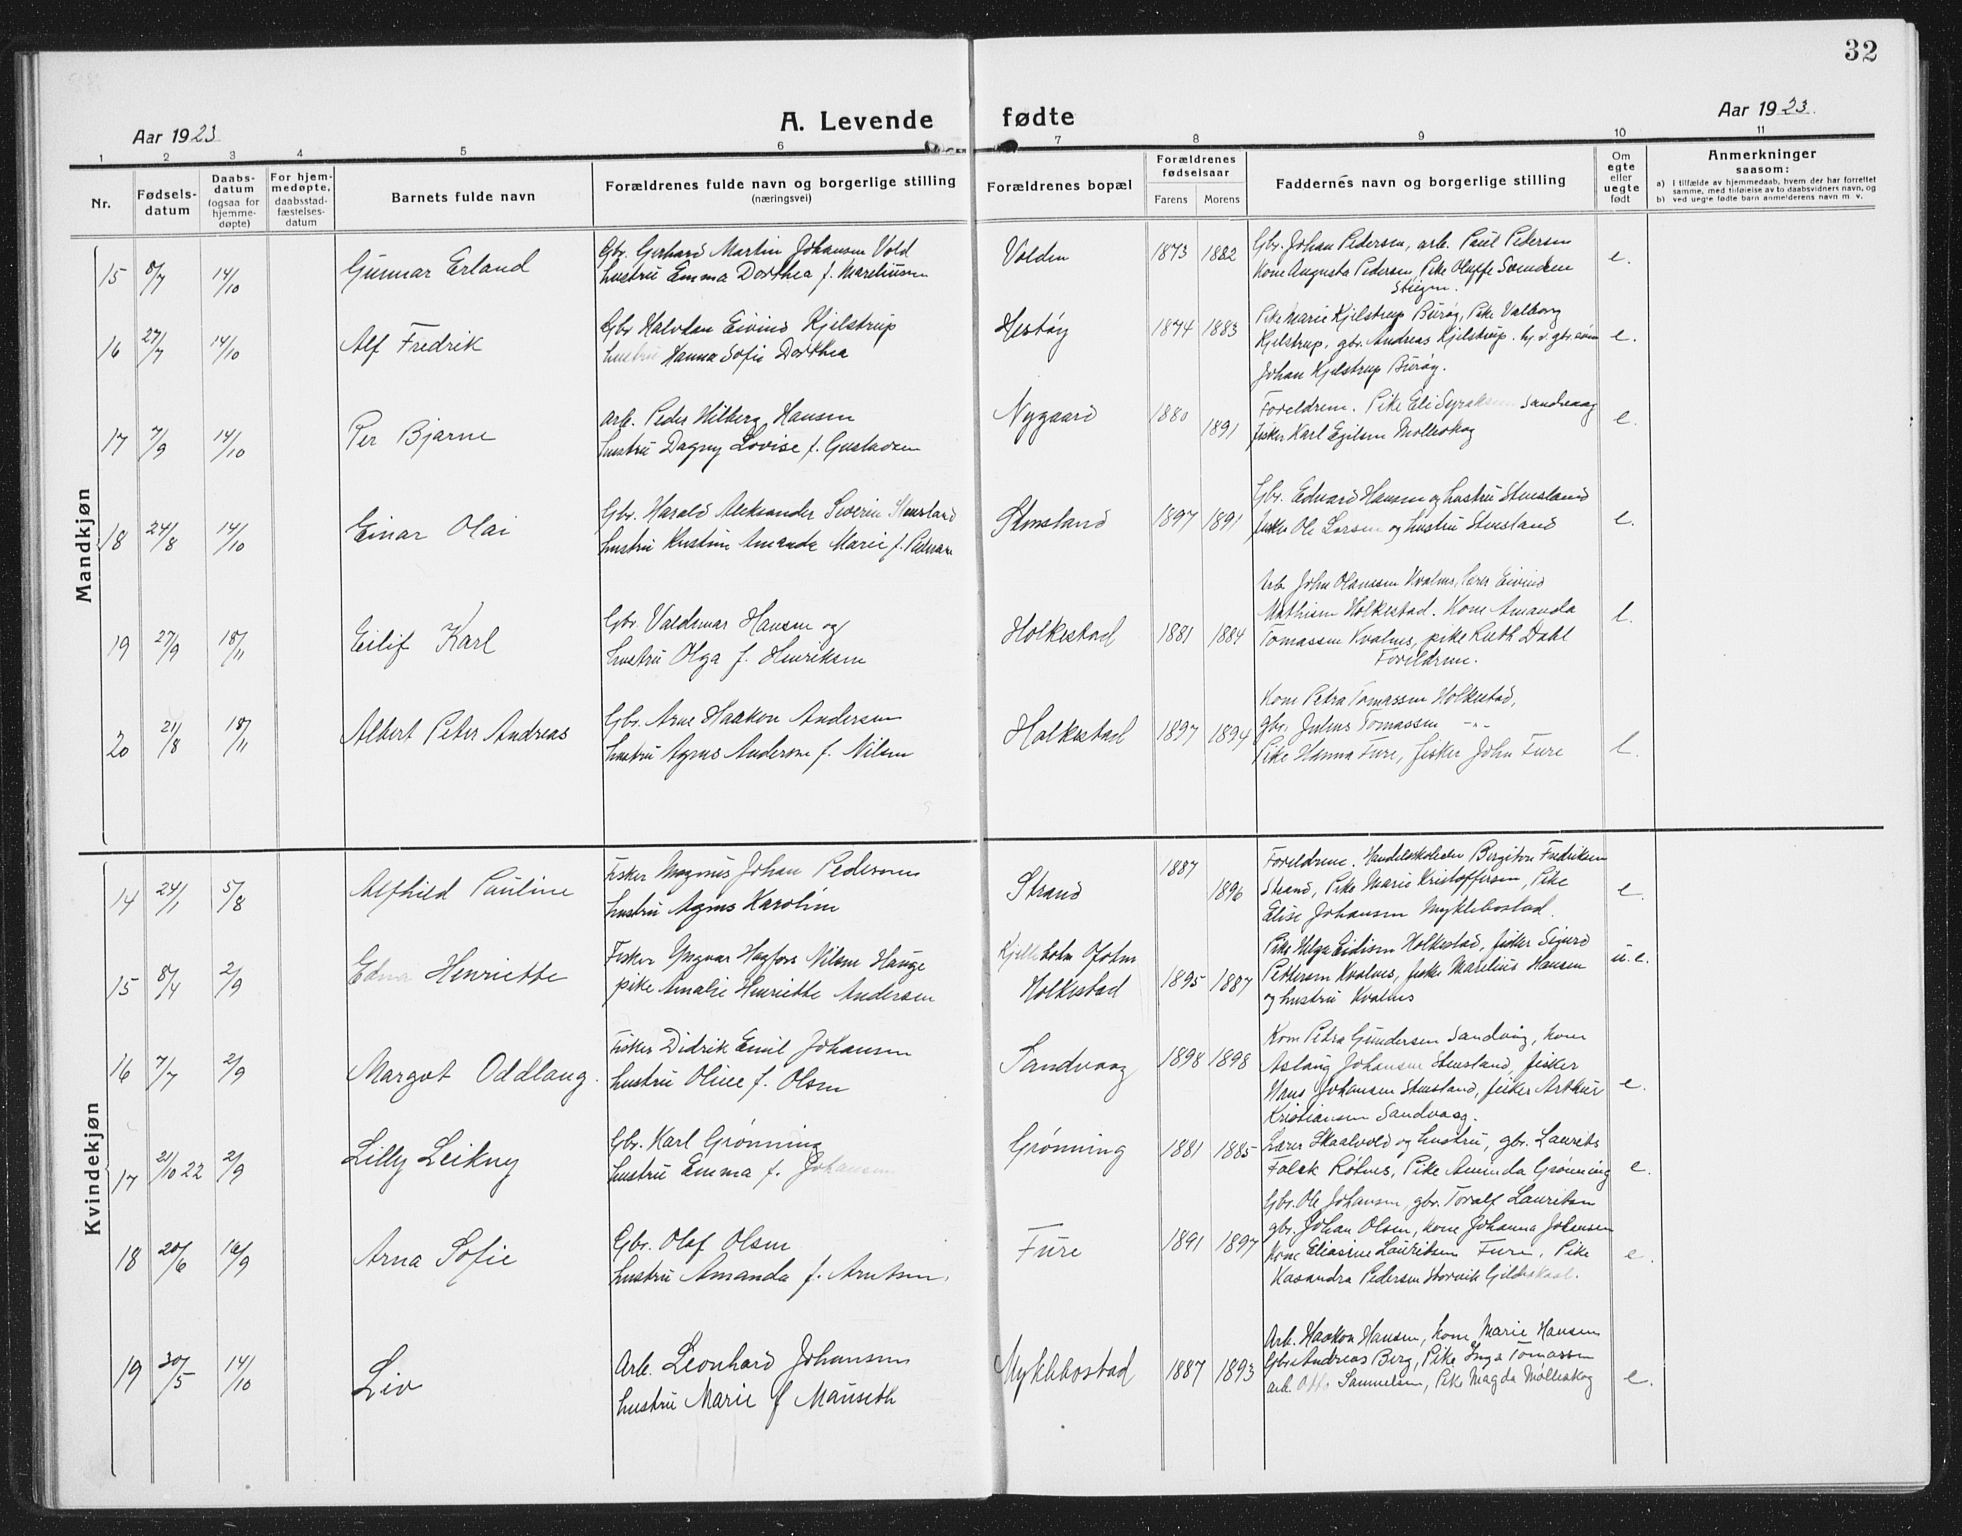 32
A. Levende fødte
Aar 1923
Aar 1923.
1 2 3 4 5 6 7 8 9 10 11
Nr.
Fødsels-
datum
Daabs-
datum
(ogsaa for
hjemme-
døpte)
For hjem-
medøpte,
daabsstad-
fæstelses-
datum
Barnets fulde navn
Forældrenes fulde navn og borgerlige stilling
(næringsvei)
Forældrenes bopæl
Forældrenes
fødselsaar
Farens Morens
Faddernes navn og borgerlige stilling
Om
egte
eller
uegte
født
Anmerkninger
saasom:
a) I tilfælde av hjemmedaab, hvem der har forrettet
samme, med tilføielse av to daabsvidners navn, og
b) ved uegte fødte barn anmelderens navn m. v.
Mandkjøn
15 8/7 14/10 Gunnar Erland
Gbr. Gerhard Martin Johansen Vold
hustru Emma Dorthea f. Mareliusen
Volden 1873 1882
Gbr. Johan Pedersen, arb. Paul Pedersen
Kone Augusta Pedersen, Pike Oluffe
Steigen.
e.
16 27/7 14/10 Alf Fredrik
Gbr Halvdan Eivind Kjelstrup
hustru Hanna Sofie Dorthea
Hestøy 1874 1883
Pike Marie Kjelstrup Burøy, Pike Valborg
Kjelstrup, gbr. Andreas Kjelstrup.
Johan Kjelstrup Burøy.
e.
17 7/9 14/10 Per Bjarne
arb. Peder Hilberg Hansen
hustru Dagny Lovise f. Gustavsen
Nygaard 1880 1891
Foreldrene. Pike Eli Syraksen Sandvaag
fisker Karl Egilsen Molleskog
e.
18 24/8 14/10 Einar Olai
Gbr. Harald Aleksander Severin Stensland
hustru Kristine Amanda Marie f. Pedersen
Stensland 1897 1891
Gbr. Edvard Hansen og hustru Stensland
fisker Ole Larsen og hustru Stensland
e.
19 27/9 18/11 Eilif Karl
Gbr. Valdemar Hansen og
hustru Olga f. Henriksen
Holkestad 1881 1884
Arb. John Olanssen Kvalnes, Lærer Eivind
Mathisen Holkestad. Kone Amanda
Tomassen Kvalnes, pike Ruth Dahl
Foreldrene.
e.
20 21/8 18/11 Albert Peter Andreas
Gbr. Arne Haakon Andersen
hustru Agnes Andersen f. Nilsen
Holkestad 1897 1894
Kone Petra Tomassen Holkestad,
gbr. Julius Tomassen -"-
Pike Hanna Fure, fisker John Fure
e.
Kvindekjøn
14 24/1 5/8 Alfhild Pauline
Fisker Magnus Johan Pedersen
hustru Agnes Karoline
Strand 1887 1896
Foreldrene. Bergiton Fredriksen
Strand, Pike Marie Kristoffersen, Pike
Elise Johansen Myklebostad.
e.
15 8/4 2/9 Edna Henriette
Fisker Yngvar Hagfors Nilsen Hauge
pike Amalie Henriette Andersen
Kjelleholm
Holkestad 1895 1887
Pike Helga Eidisen Holkestad, fisker Sigurd
Pettersen Kvalnes, fisker Marelius Hansen
og hustru Kvalnes
u.e.
16 7/7 2/9 Margot Oddlaug.
Fisker Didrik Emil Johansen
hustru Oline f. Olsen
Sandvaag 1898 1898
Kone Petra Gundersen Sandvåg, kone
Aslaug Johansen Stensland, fisker
Hans Johansen Stensland, fisker Arthur
Kristiansen Sandvaag.
e.
17 21/10 22 2/9 Lilly Leikny
Gbr. Karl Grønning
hustru Emma f. Johansen
Grønning 1881 1885
Lærer Skaalvold og hustru, gbr. Laurits
Falsk Røtnes, Pike Aminda Grønning
e.
18 20/6 16/9 Arna Sofie
Gbr. Olaf Olsen
hustru Amanda f. Arntsen.
Fure 1891 1897
Gbr. Ole Johansen, gbr. Toralf Lauritsen
gbr. Johan Olsen, kone Johanna Johansen
Kone Eliasine Lauritsen Fure, Pike
Kasandra Pedersen Storvik Gildeskaal.
e.
19 30/5 14/10 Liv
Arb. Leonhard Johansen
hustru Marie f Mauseth
Myklebostad 1887 1893
Arb. Haakon Hansen, kone Marie Hansen
Gbr. Andreas Berg, Pike Inga Tomassen
arb. Otto Samuelsen, Pike Magda Molleskog
e.